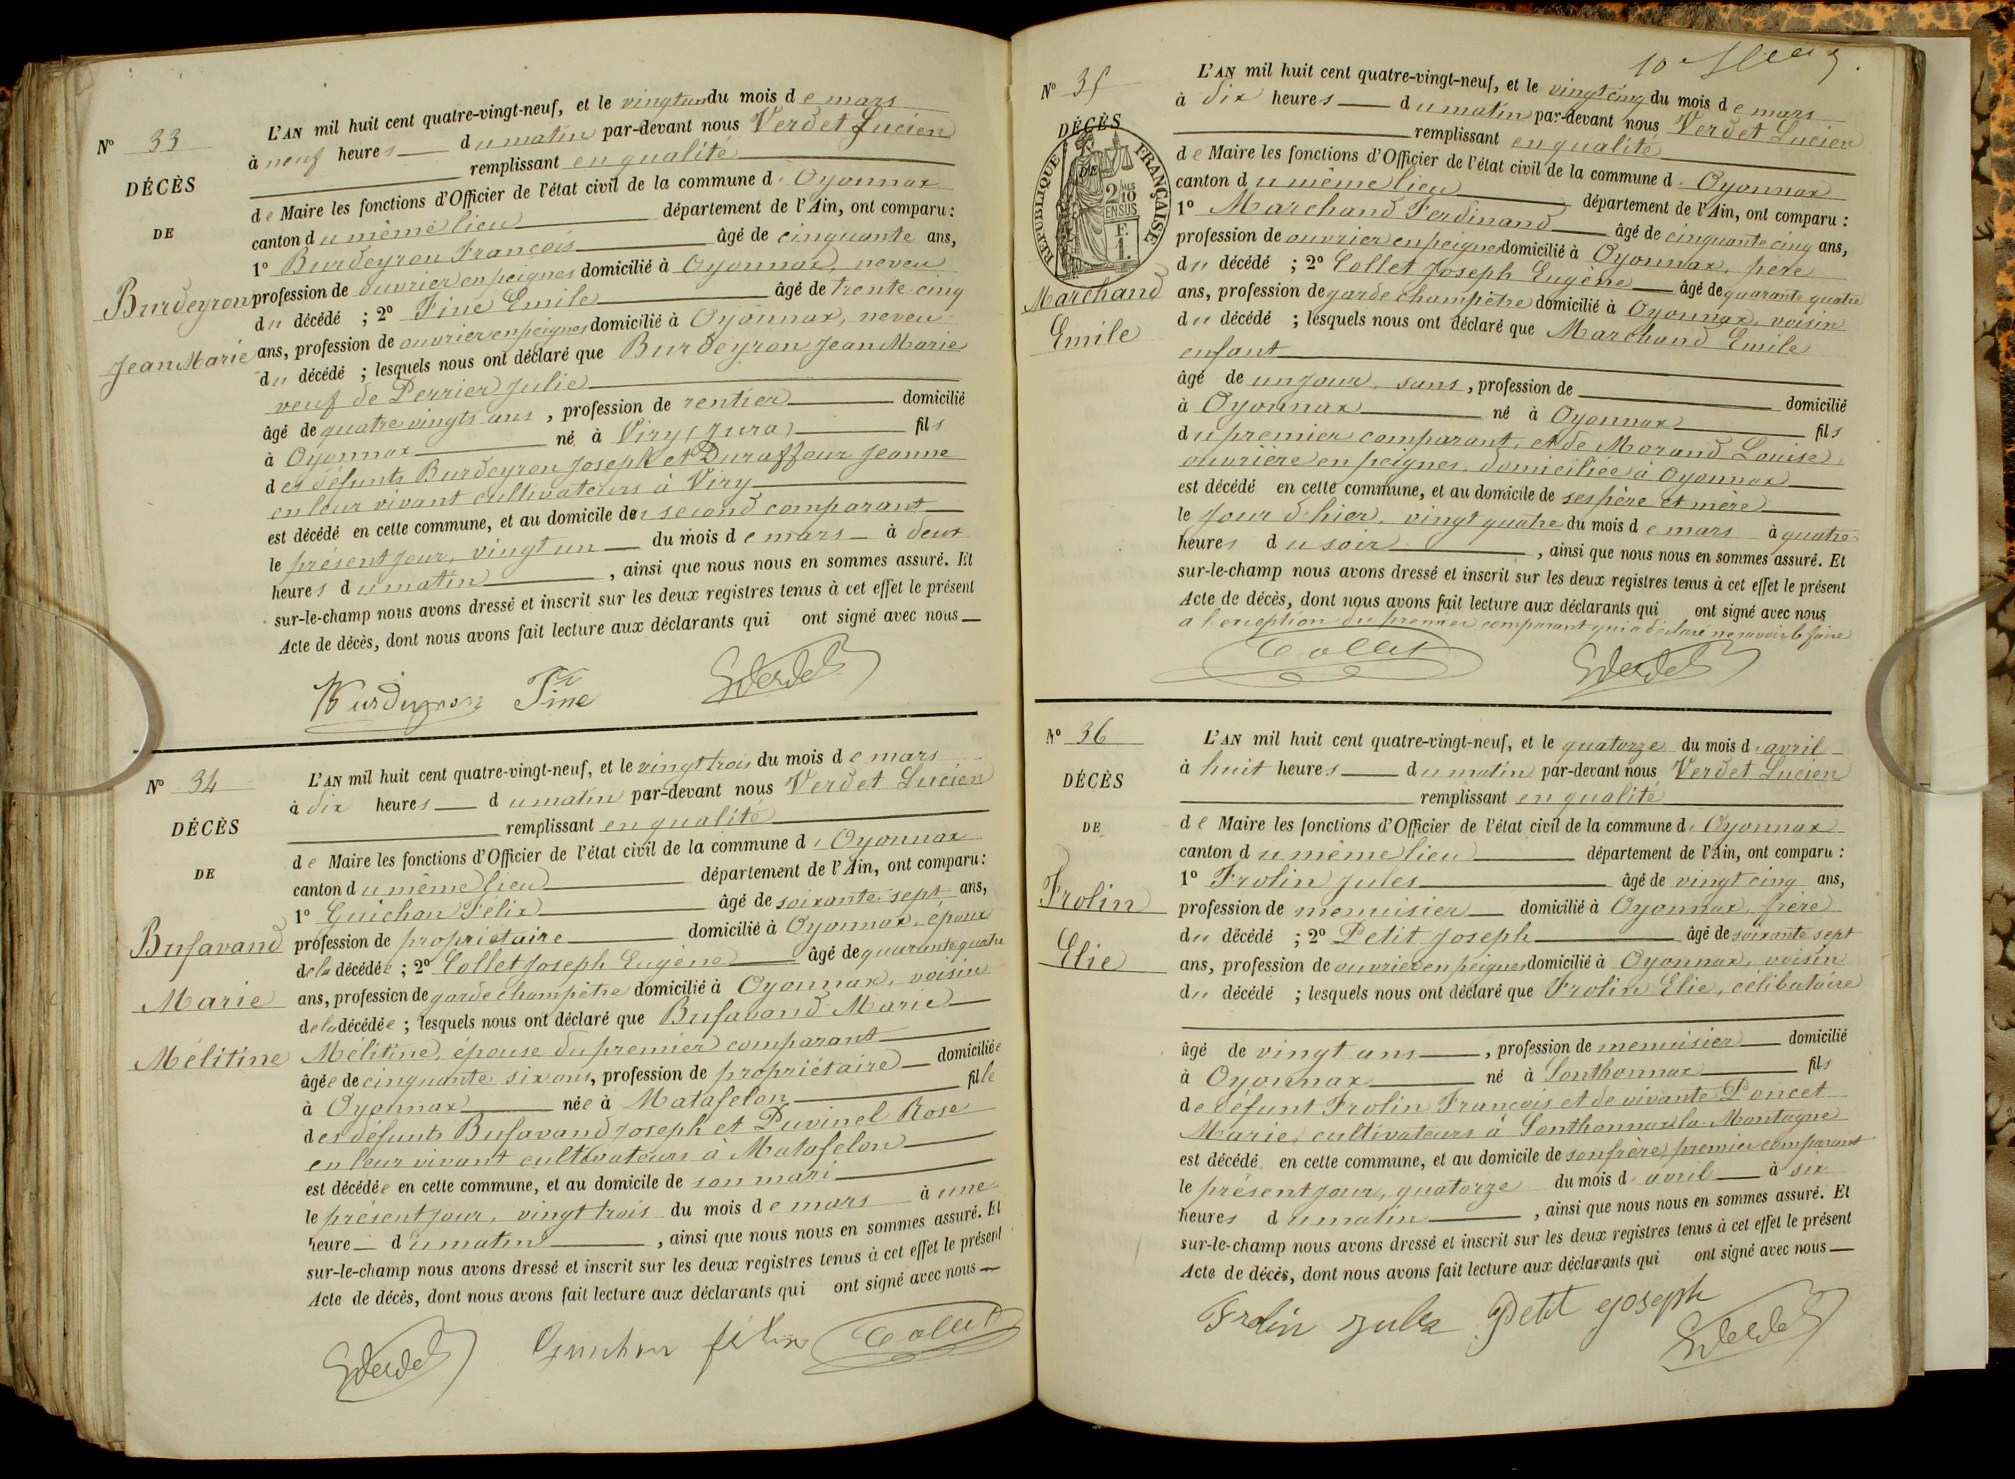 Nº 33
DÉCÈS
DE
Burdeyron
Jean Marie
L'AN mil huit cent quatre-vingt-neuf, et le vingt un du mois de mars
à neuf heures du matin par-devant nous Verdet Lucien
remplissant en qualité
de Maire les fonctions d'Officier de l'état civil de la commune d' Oyonnax
canton du même lieu département de l'Ain, ont comparu :
1º Burdeyron François âgé de cinquante ans,
profession de ouvrier en peignes domicilié à Oyonnax, neveu
du décédé ; 2º Finé Emile âgé de trente cinq
ans, profession de ouvrier en peignes domicilié à Oyonnax, neveu
du décédé ; lesquels nous ont déclaré que Burdeyron Jean Marie
veuf de Perrier Julie
âgé de quatre vingts ans, profession de rentier domicilié
à Oyonnax né à Viry (Jura) fils
des défunts Burdeyron Joseph et Duraffour Jeanne
en leur vivant cultivateurs à Viry
est décédé en cette commune, et au domicile du second comparant
le présent jour, vingt un du mois de mars à deux
heures du matin, ainsi que nous nous en sommes assuré. Et
sur-le-champ nous avons dressé et inscrit sur les deux registres tenus à cet effet le présent
Acte de décès, dont nous avons fait lecture aux déclarants qui ont signé avec nous
Burdeyron Finé Verdet
Nº 34
DÉCÈS
DE
Bufavand
Marie
Mélitine
L'AN mil huit cent quatre-vingt-neuf, et le vingt trois du mois de mars
à dix heures du matin par-devant nous Verdet Lucien
remplissant en qualité
de Maire les fonctions d'Officier de l'état civil de la commune d' Oyonnax
canton du même lieu département de l'Ain, ont comparu :
1º Guichon Félix âgé de soixante sept ans,
profession de propriétaire domicilié à Oyonnax, époux
de la décédée ; 2º Collet Joseph Eugène âgé de quarante quatre
ans, profession de garde champêtre domicilié à Oyonnax, voisin
de la décédée ; lesquels nous ont déclaré que Bufavand Marie
Mélitine, épouse du premier comparant
âgée de cinquante six ans, profession de propriétaire domiciliée
à Oyonnax née à Matafelon fille
des défunts Bufavand Joseph et Puvinel Rose
en leur vivant cultivateurs à Matafelon
est décédée en cette commune, et au domicile de son mari
le présent jour, vingt trois du mois de mars à une
heure du matin, ainsi que nous nous en sommes assuré. Et
sur-le-champ nous avons dressé et inscrit sur les deux registres tenus à cet effet le présent
Acte de décès, dont nous avons fait lecture aux déclarants qui ont signé avec nous
Verdet Guichon félix Collet
Nº 35
DÉCÈS
DE
RÉPUBLIQUE FRANÇAISE
2/10 EN SUS
Marchand
Emile
L'AN mil huit cent quatre-vingt-neuf, et le vingt cinq du mois de mars
à dix heures du matin par-devant nous Verdet Lucien
remplissant en qualité
de Maire les fonctions d'Officier de l'état civil de la commune d' Oyonnax
canton du même lieu département de l'Ain, ont comparu :
1º Marchand Ferdinand âgé de cinquante cinq ans,
profession de ouvrier en peignes domicilié à Oyonnax, père
du décédé ; 2º Collet Joseph Eugène âgé de quarante quatre
ans, profession de garde champêtre domicilié à Oyonnax, voisin
du décédé ; lesquels nous ont déclaré que Marchand Emile
enfant
âgé de un jour, sans, profession de domicilié
à Oyonnax né à Oyonnax fils
du premier comparant, et de Morand Louise,
ouvrière en peignes, domiciliée à Oyonnax
est décédé en cette commune, et au domicile de ses père et mère
le jour d'hier, vingt quatre du mois de mars à quatre
heures du soir, ainsi que nous nous en sommes assuré. Et
sur-le-champ nous avons dressé et inscrit sur les deux registres tenus à cet effet le présent
Acte de décès, dont nous avons fait lecture aux déclarants qui ont signé avec nous
à l'exception du premier comparant qui a déclaré ne savoir le faire
Collet Verdet
Nº 36
DÉCÈS
DE
Frolin
Elie
L'AN mil huit cent quatre-vingt-neuf, et le quatorze du mois d'avril
à huit heures du matin par-devant nous Verdet Lucien
remplissant en qualité
de Maire les fonctions d'Officier de l'état civil de la commune d' Oyonnax
canton du même lieu département de l'Ain, ont comparu :
1º Frolin Jules âgé de vingt cinq ans,
profession de menuisier domicilié à Oyonnax, frère
du décédé ; 2º Petit Joseph âgé de soixante sept
ans, profession de ouvrier en peignes domicilié à Oyonnax, voisin
du décédé ; lesquels nous ont déclaré que Frolin Elie, célibataire
âgé de vingt ans, profession de menuisier domicilié
à Oyonnax né à Sonthonnax fils
de défunt Frolin François et de vivante Poncet
Marie, cultivateurs à Sonthonnax la Montagne
est décédé en cette commune, et au domicile de son frère, premier comparant
le présent jour, quatorze du mois d'avril à six
heures du matin, ainsi que nous nous en sommes assuré. Et
sur-le-champ nous avons dressé et inscrit sur les deux registres tenus à cet effet le présent
Acte de décès, dont nous avons fait lecture aux déclarants qui ont signé avec nous
Frolin Jules Petit Joseph Verdet